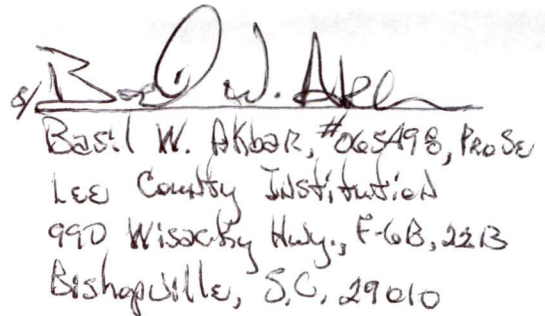 s/ Basil W. Akbar
Basil W. Akbar, #065498, Pro Se
Lee County Institution
990 Wisacky Hwy., F-6B, 22B
Bishopville, S.C. 29010